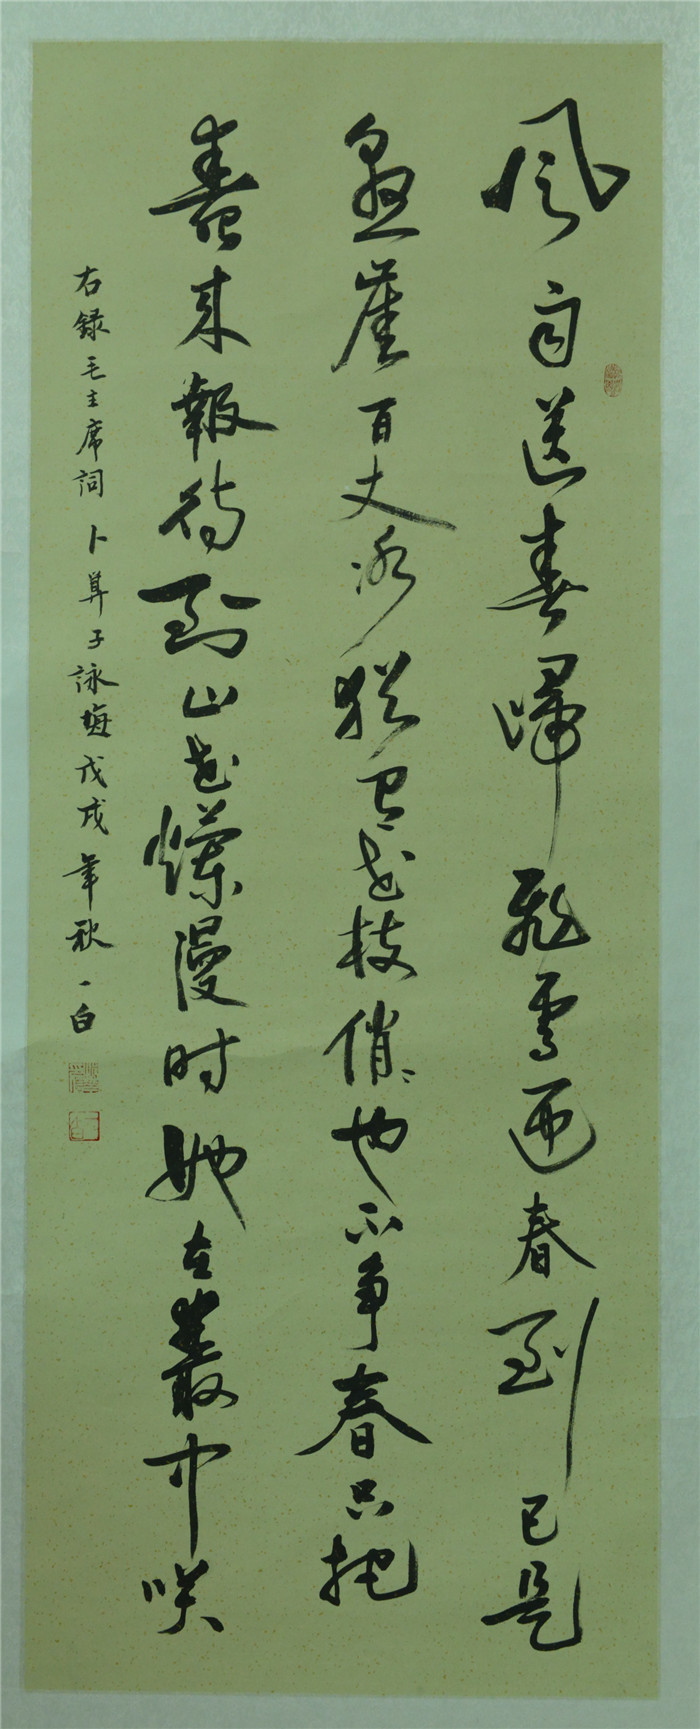 風雨送春歸飛雪迎春到已是
悬崖百丈冰猶有花枝俏〻也不争春只把
春来報待到山花爛漫时她在叢中咲
右録毛主席詞卜算子詠梅戊戌年秋一白